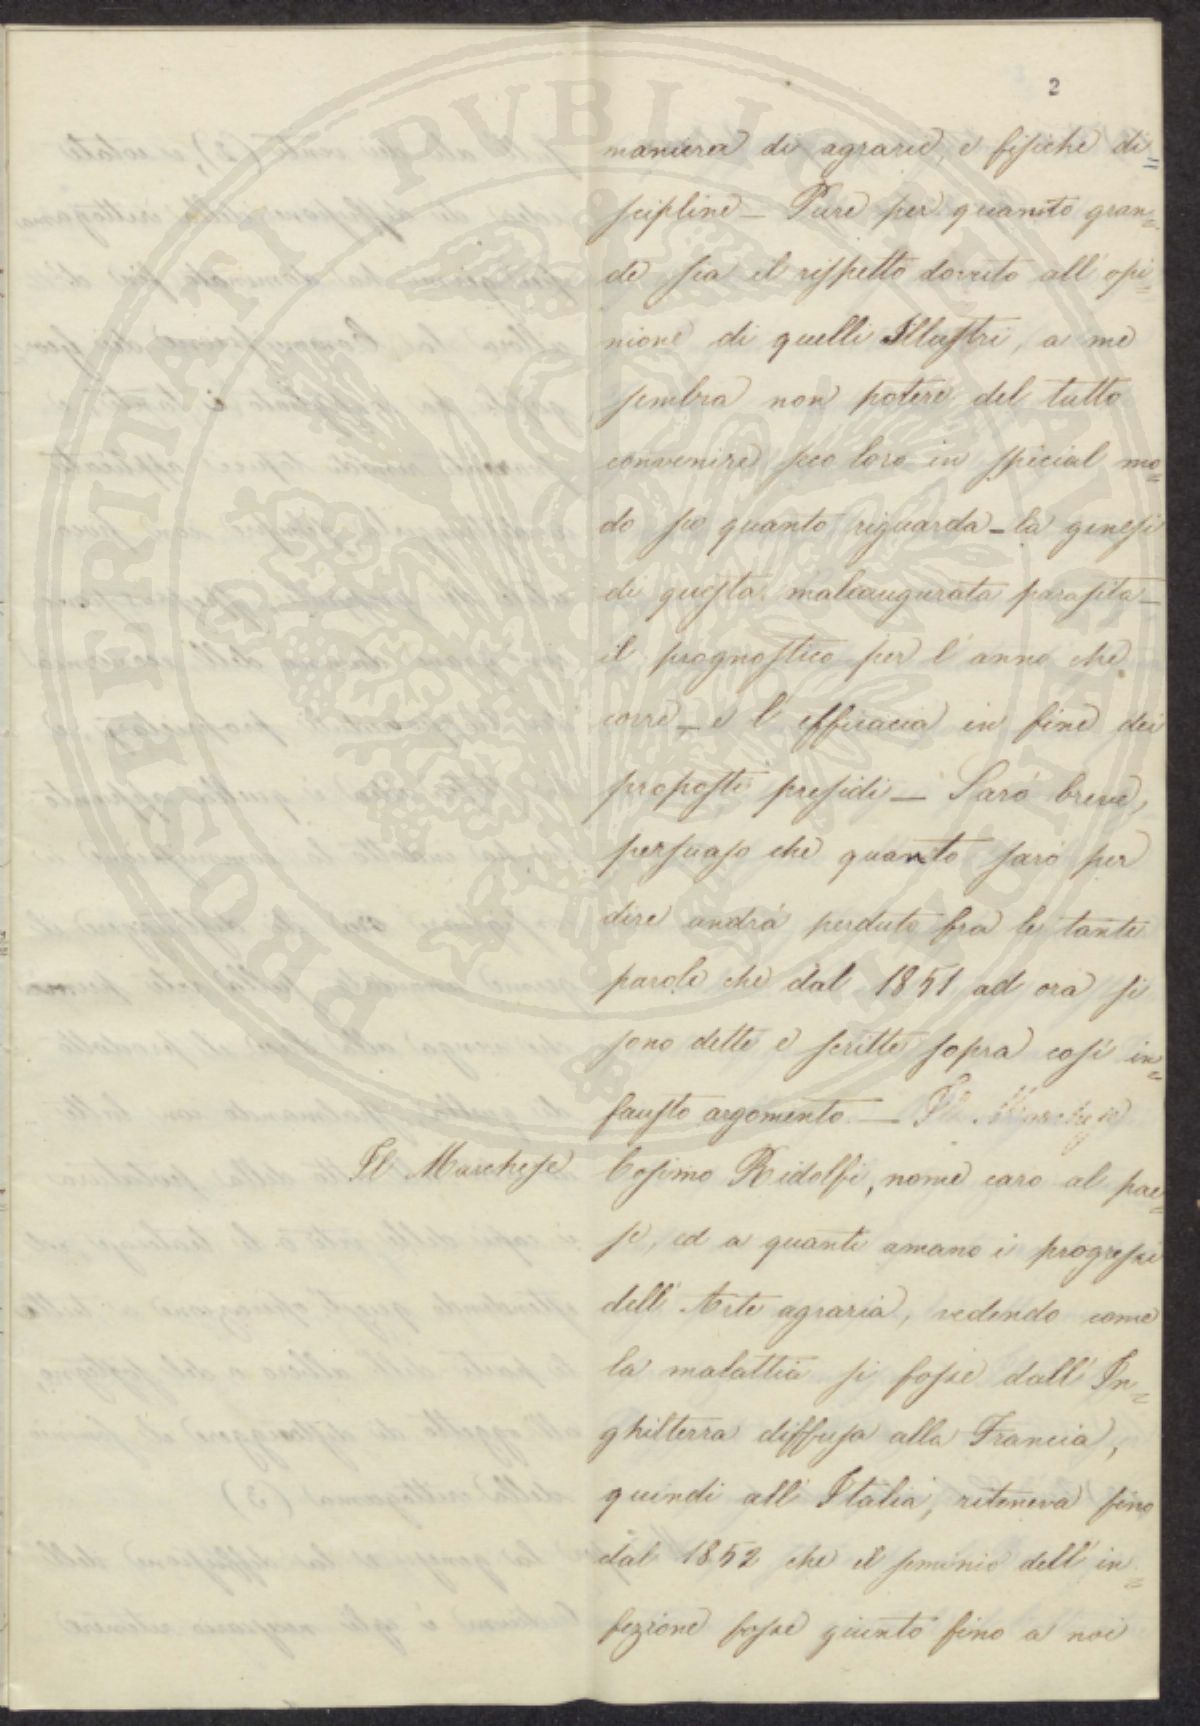 2
maniera di agrarie, e fisiche di=
scipline _ Pure per quanto gran=
de sia il rispetto dovuto all' opi=
nione di quelli Illustri, a me
sembra non potere del tutto
convenire seco loro in special mo=
do su quanto riguarda _ la genesi
di questa malaugurata parasita _
il prognostico per l' anno che
corre _ e l' efficacia in fine dei
proposti presidi _ Saró breve,
persuaso che quanto saró per
dire andrá perduto fra le tante
parole che dal 1851 ad ora si
sono dette e scritte sopra cosí in=
fausto argomento _ Il Marchese
Il Marchese Cosimo Ridolfi, nome caro al pae=
se, ed a quanti amano i progressi
dell' Arte agraria, vedendo come
la malattia si fosse dall' In=
ghilterra diffusa alla Francia,
quindi all' Italia, riteneva fino
dal 1852 che il seminio dell' in=
fezione fosse giunto fino a noi
PROSPERITATI PUBLICAE